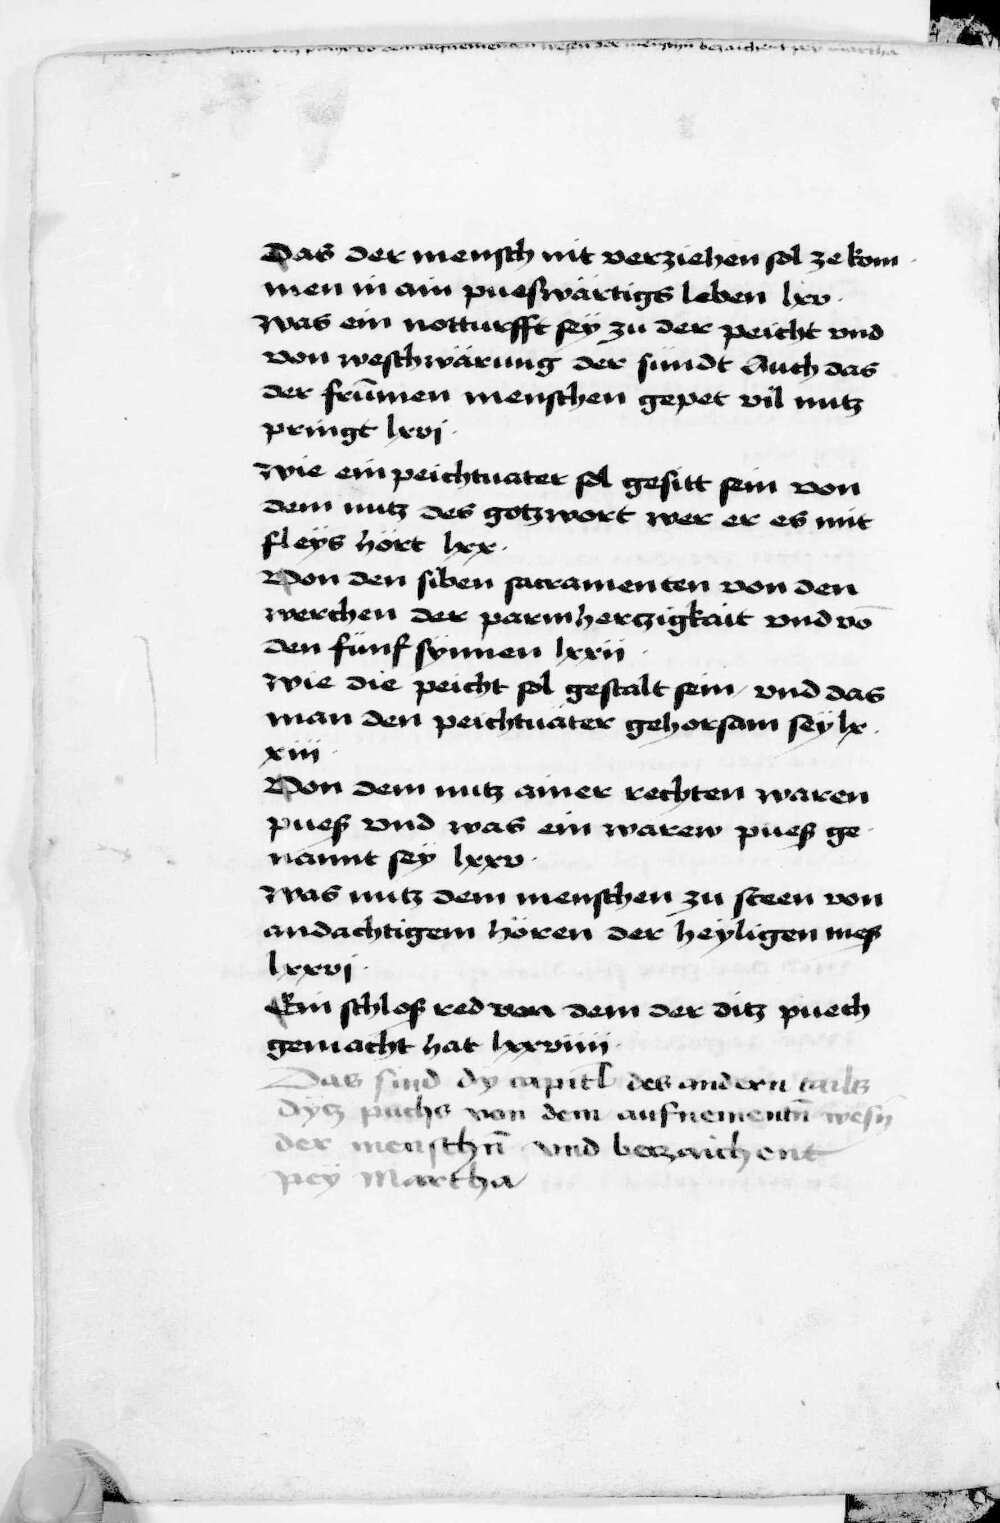 Das der mensch nit verziehen sol ze kom
men in ain pueswärtigs leben lxv ·
was ein notturfft seÿ zu der peicht vnd
von weschwärung der sündt Auch das
der frūmen menschen gepet vil nutz
pringt lxvj ·
wie ein peichtuater sol gesitt sein von
dem nutz des gotzwort wer er es mit
fleÿs hört lxx ·
Von den siben sacramenten von den
werchen der parmherczigkait vnd vō
den fünf synnen lxxii ·
wie die peicht sol gestalt sein / vnd das
man den peichtuäter gehorsam seÿ lx ·
xiii ·
Von dem nutz ainer rechten waren
pueß vnd was ein warew pueß ge
nannt seÿ lxxv ·
was nutz dem menschen zu steen von
andachtigem hören der heÿligen meß
lxxvj ·
Ein schloß red von dem der ditz puech
gemacht hat lxxviiij ·
Das sind dÿ capitl des andern tailtz
dÿtz puchs von dem aufnementn̄ wesn̄
der menschn̄ vnd beczaichent
peÿ Martha